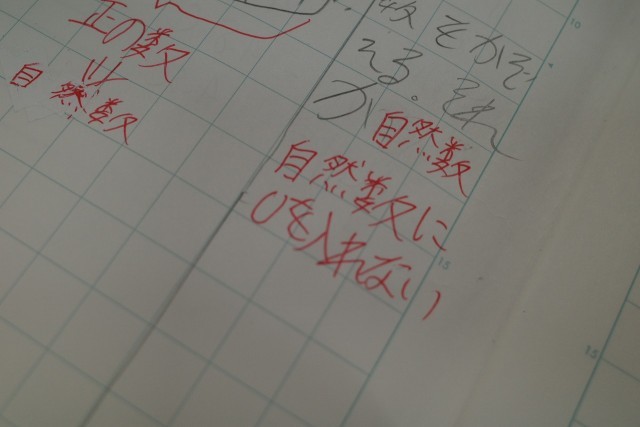 正の数
自然数
数をかぞ
える。それ
が 自然数
自然数に
0を入れない
10
15
15